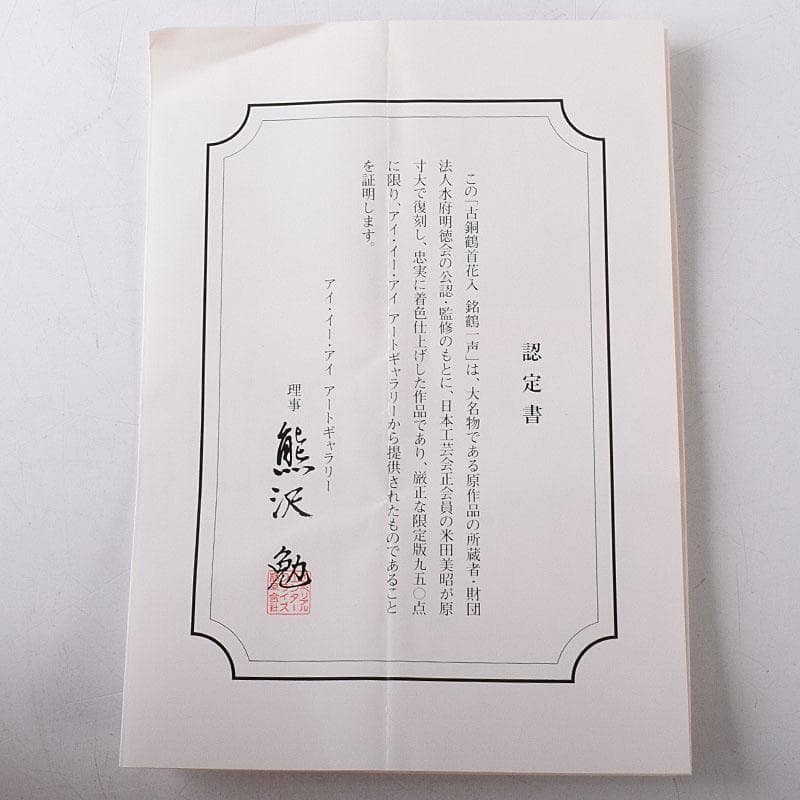 認定書
この「古銅鶴首花入 銘鶴一声」は、大名物である原作品の所蔵者・財団
法人水府明徳会の公認・監修のもとに、日本工芸会正会員の米田美昭が原
寸大で復刻し、忠実に着色仕上げした作品であり、厳正な限定版九五〇点
に限り、アイ・イー・アイ アートギャラリーから提供されたものであること
を証明します。
アイ・イー・アイ アートギャラリー
理事 熊沢 勉